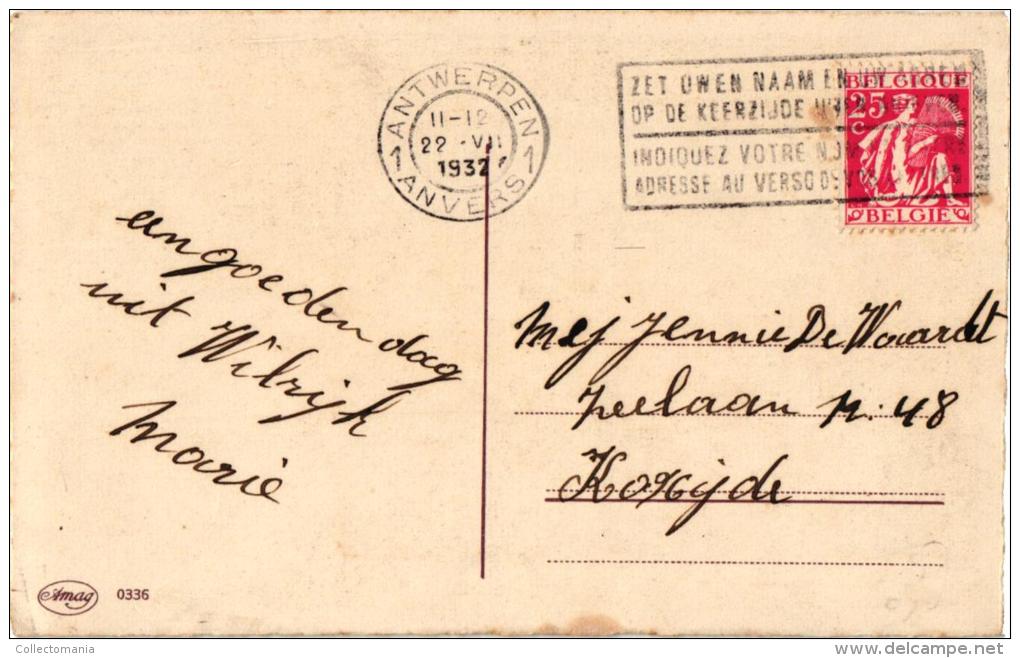 ANTWERPEN
11-12
22 -VII
1932
1 1
ANVERS
ZET UWEN NAAM EN UW
OP DE KEERZIJDE
INDIQUEZ VOTRE NOM
ADRESSE AU VERSO DE VOS
BELGIQUE
25
C
BELGIE
een goeden dag
uit Wilrijk
Marie
Mej Jennie De Waardt
Zeelaan N. 48
Koxijde
Amag 0336
Collectomania delcampe.net